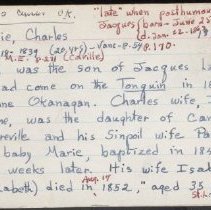 "late" when posthumou
Jacques (born - June 2
ie, Charles
(d. Jan. 22.
18- 1839 (20 yrs) - Vanc - B-54 B.170
M.E. B-54 (Carille)
was the son of Jacques La
ad come on the Tonquin in 18
ne Okanagan. Charles wife,
ne, was the daughter of Can
reville and his Sinpoil wife Pa
baby Marie, baptized in 184
weeks later. His wife Isab
Aug. 17
abeth) died in 1852, "aged 35
St. L